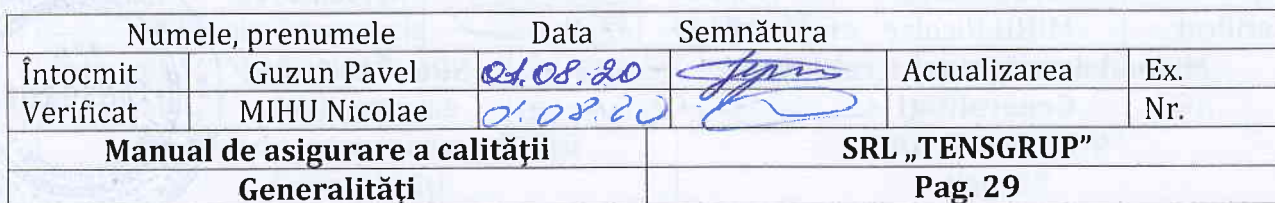 Numele, prenumele Data Semnătura
Întocmit Guzun Pavel 01.08.20 Actualizarea Ex.
Verificat MIHU Nicolae 01.08.20 Nr.
Manual de asigurare a calităţii SRL „TENSGRUP”
Generalităţi Pag. 29